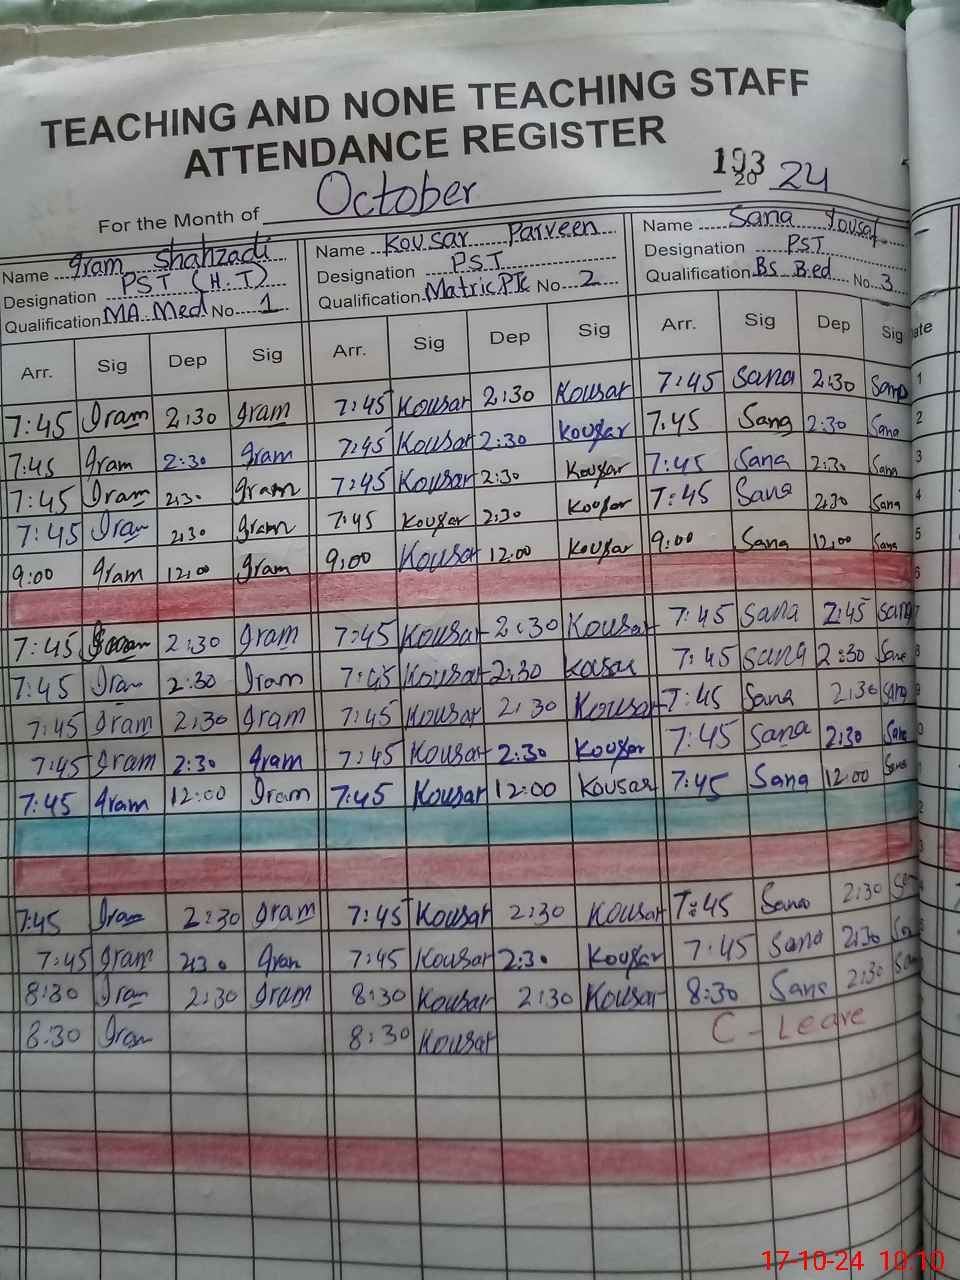 TEACHING AND NONE TEACHING STAFF
ATTENDANCE REGISTER
193
For the Month of October 20 24
Name Iram Shahzadi Name Kousar Parveen Name Sana Yousaf
Designation PST (H.T) Designation PST Designation PST
Qualification MA Med No 1 Qualification Matric PTC No 2 Qualification Bs B.ed No 3
Arr. Sig Dep Sig Arr. Sig Dep Sig Arr. Sig Dep Sig ate
7:45 Iram 2:30 Iram 7:45 Kousar 2:30 Kousar 7:45 Sana 2:30 Sana 1
7:45 Iram 2:30 Iram 7:45 Kousar 2:30 Kousar 7:45 Sana 2:30 Sana 2
7:45 Iram 2:30 Iram 7:45 Kousar 2:30 Kousar 7:45 Sana 2:30 Sana 3
7:45 Iram 2:30 Iram 7:45 Kousar 2:30 Kousar 7:45 Sana 2:30 Sana 4
9:00 Iram 12:00 Iram 9:00 Kousar 12:00 Kousar 9:00 Sana 12:00 Sana 5
6
7:45 Iram 2:30 Iram 7:45 Kousar 2:30 Kousar 7:45 Sana 2:45 Sana 7
7:45 Iram 2:30 Iram 7:45 Kousar 2:30 Kousar 7:45 Sana 2:30 Sana 8
7:45 Iram 2:30 Iram 7:45 Kousar 2:30 Kousar 7:45 Sana 2:30 Sana 9
7:45 Iram 2:30 Iram 7:45 Kousar 2:30 Kousar 7:45 Sana 2:30 Sana 0
7:45 Iram 12:00 Iram 7:45 Kousar 12:00 Kousar 7:45 Sana 12:00 Sana
2
3
7:45 Iram 2:30 Iram 7:45 Kousar 2:30 Kousar 7:45 Sana 2:30
7:45 Iram 2:30 Iram 7:45 Kousar 2:30 Kousar 7:45 Sana 2:30
8:30 Iram 2:30 Iram 8:30 Kousar 2:30 Kousar 8:30 Sana 2:30
8:30 Iram 8:30 Kousar C - Leave
17-10-24 10:10